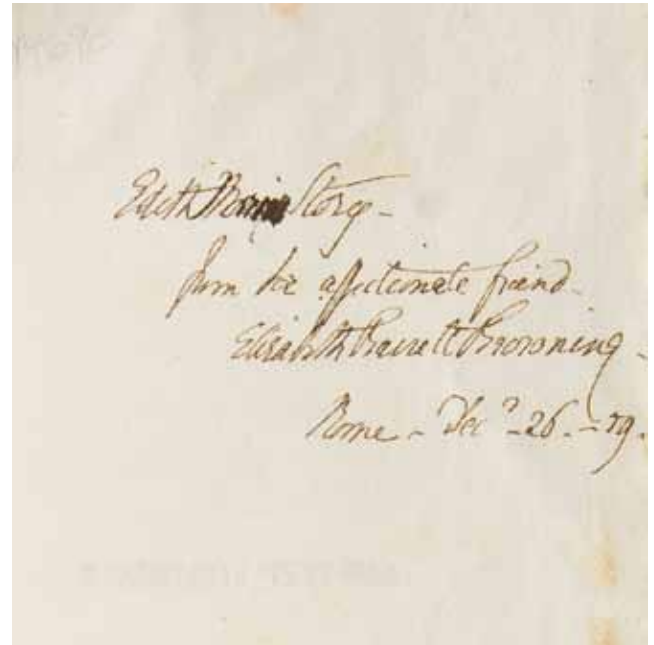 Edith Story -
from her affectionate friend -
Elizabeth Barrett Browning -
Rome - Dec. 26. - 59.